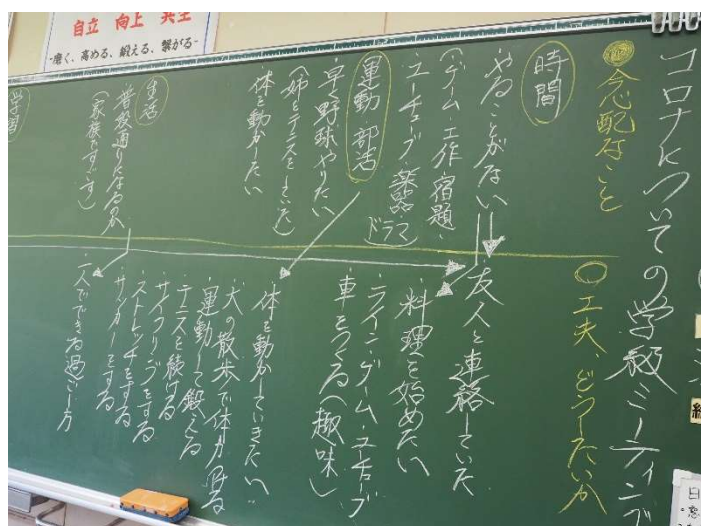 自立 向上 共生
-磨く、高める、鍛える、繋がる-
コロナについての学級ミーティング
心配なこと
時間
・やることがない
(・ゲーム・工作・宿題・
ユーチューブ・楽器・ドラマ)
運動・部活
・早く野球やりたい
(姉とテニスをしていた)
・体を動かしたい
生活
・普段通りになるのか
(家族ですごす)
学習
○工夫、どうしたいか
・友人と連絡していた
・料理を始めたい
・ライン・ゲーム・ユーチューブ
・車をつくる(趣味)
・体を動かしていきたい。
・犬の散歩で体力つける
・運動して鍛える
・テニスを続ける
・サイクリングをする
・ストレッチをする
・サッカーをする
・一人でできる過ごし方